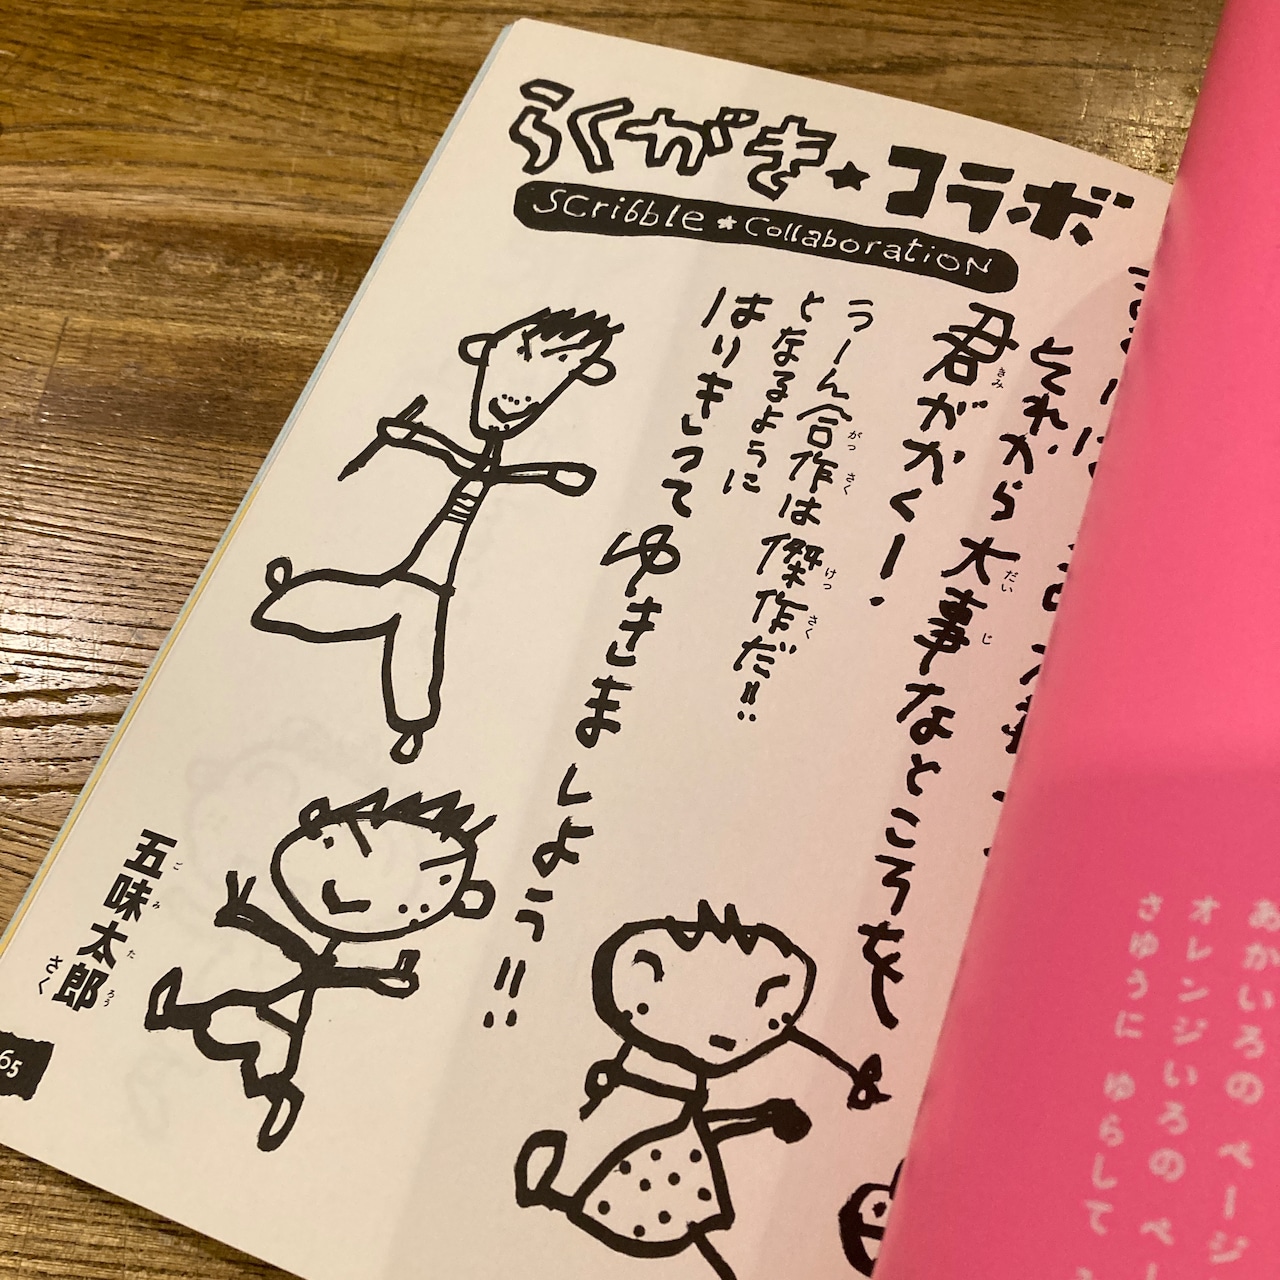 らくがき★コラボ
Scribble★Collaboration
それから大事なところを
君がかくー!
うーん合作は傑作だ!!
となるように
はりきって ゆきましょう!!
五味太郎 さく
65
あかいろの ページ
オレンジいろの ペー
さゆうに ゆらして